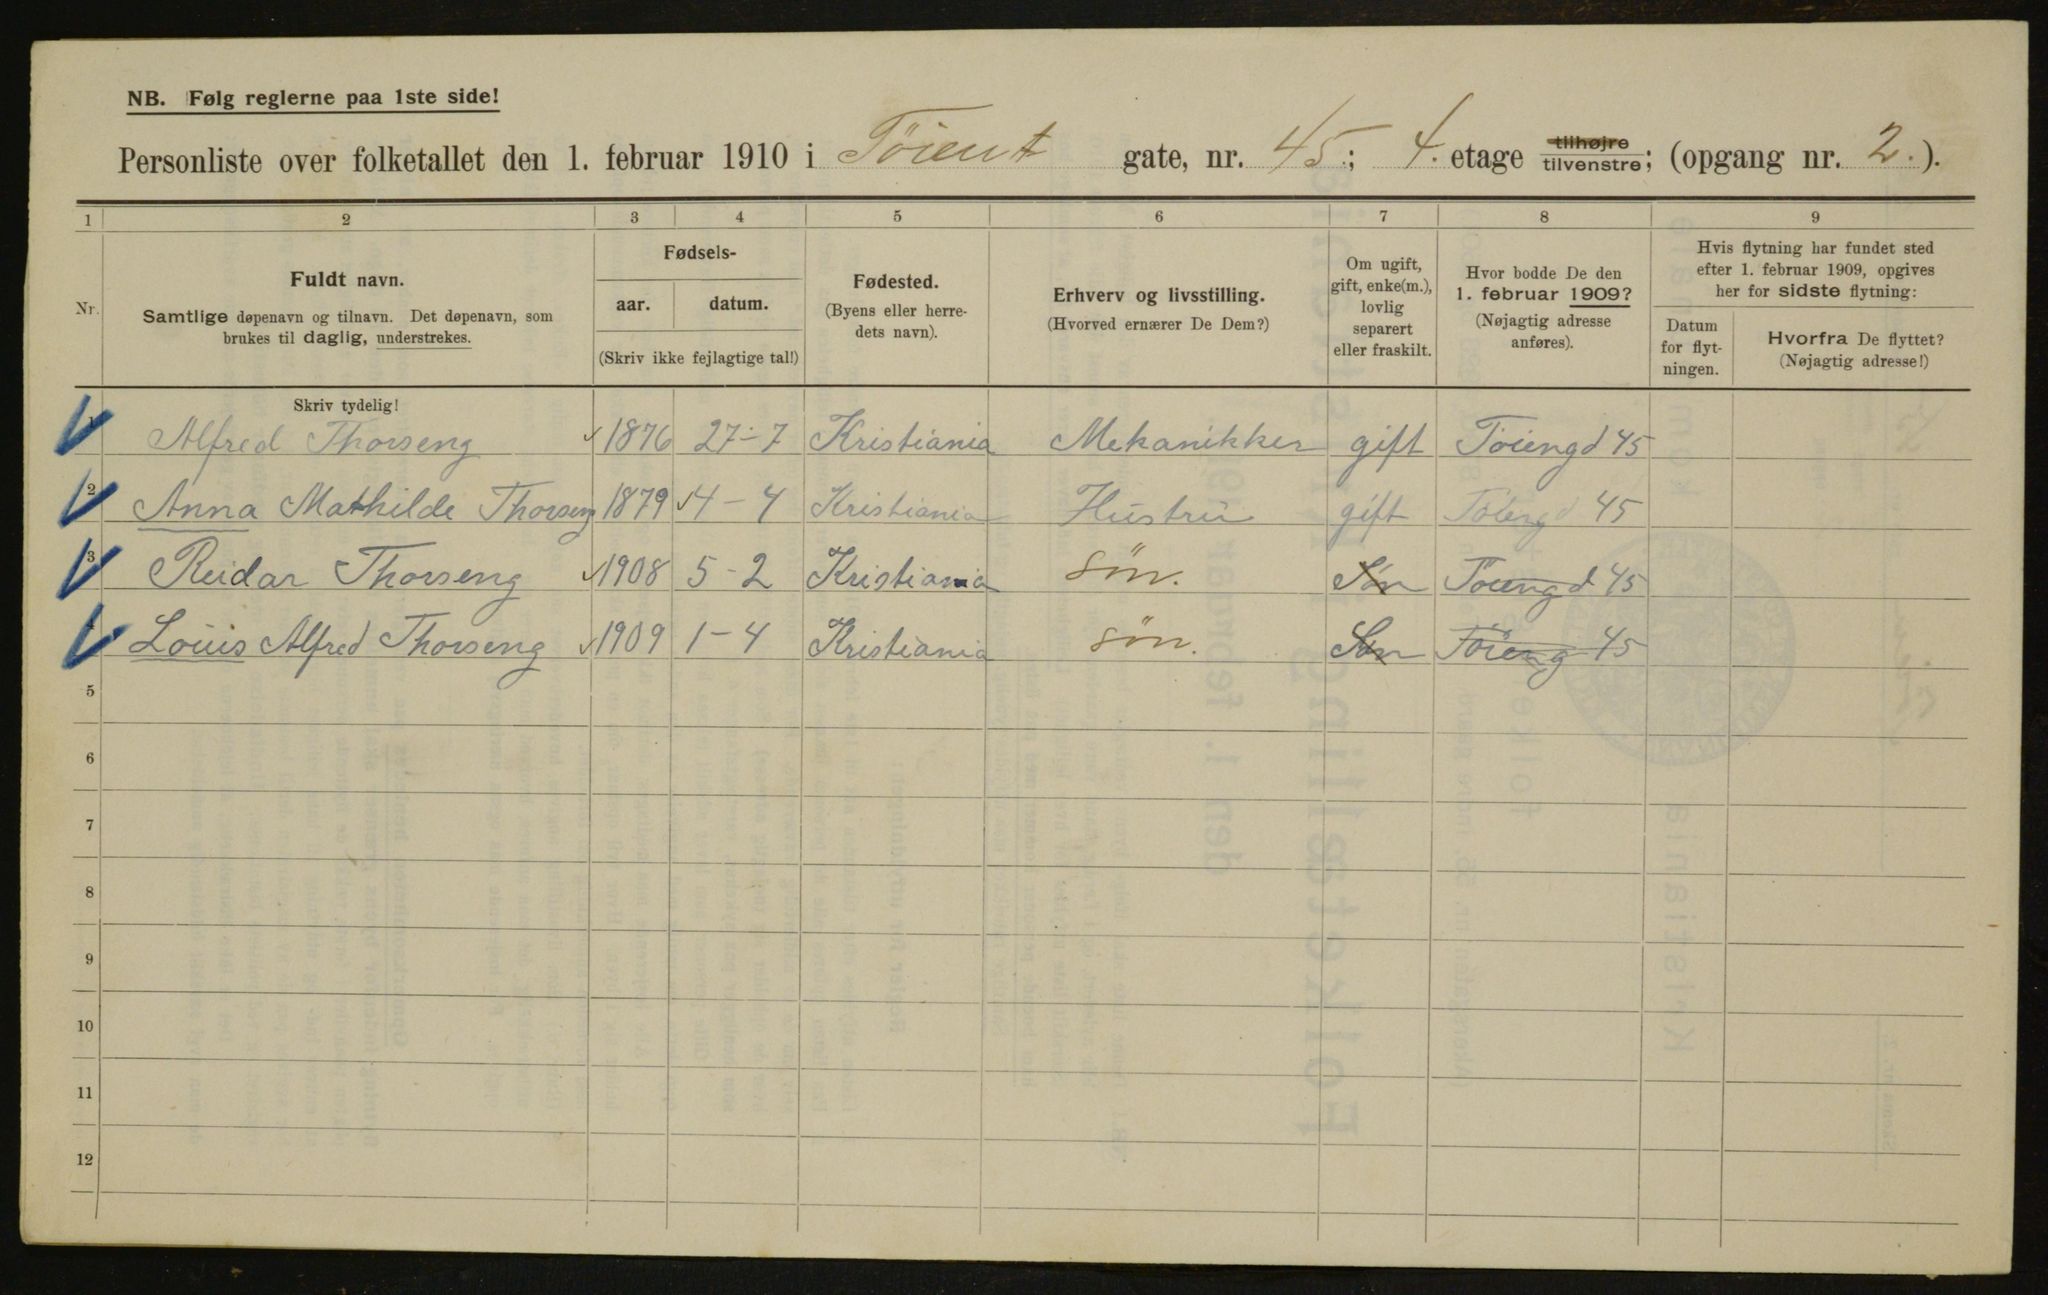 NB. Følg reglerne paa 1ste side!
Personliste over folketallet den 1. februar 1910 i Töient gate, nr. 45; 4. etage tilhøjre tilvenstre; (opgang nr. 2.).
1 2 3 4 5 6 7 8 9
Nr.
Fuldt navn.
Samtlige døpenavn og tilnavn. Det døpenavn, som
brukes til daglig, understrekes.
Fødsels-
aar. datum.
(Skriv ikke fejlagtige tal!)
Fødested.
(Byens eller herre-
dets navn).
Erhverv og livsstilling.
(Hvorved ernærer De Dem?)
Om ugift,
gift, enke(m.),
lovlig
separert
eller fraskilt.
Hvor bodde De den
1. februar 1909?
(Nøjagtig adresse
anføres).
Hvis flytning har fundet sted
efter 1. februar 1909, opgives
her for sidste flytning:
Datum
for flyt-
ningen.
Hvorfra De flyttet?
(Nøjagtig adresse!)
Skriv tydelig!
1 Alfred Thorseng 1876 27-7 Kristiania Mekanikker gift Töiengd 45
2 Anna Mathilde Thorseng 1879 4-4 Kristiania Hustru gift Töiengd 45
3 Reidar Thorseng 1908 5-2 Kristiania søn. Søn Töiengd 45
4 Louis Alfred Thorseng 1909 1-4 Kristiania søn. Søn Töieng 45
5
6
7
8
9
10
11
12